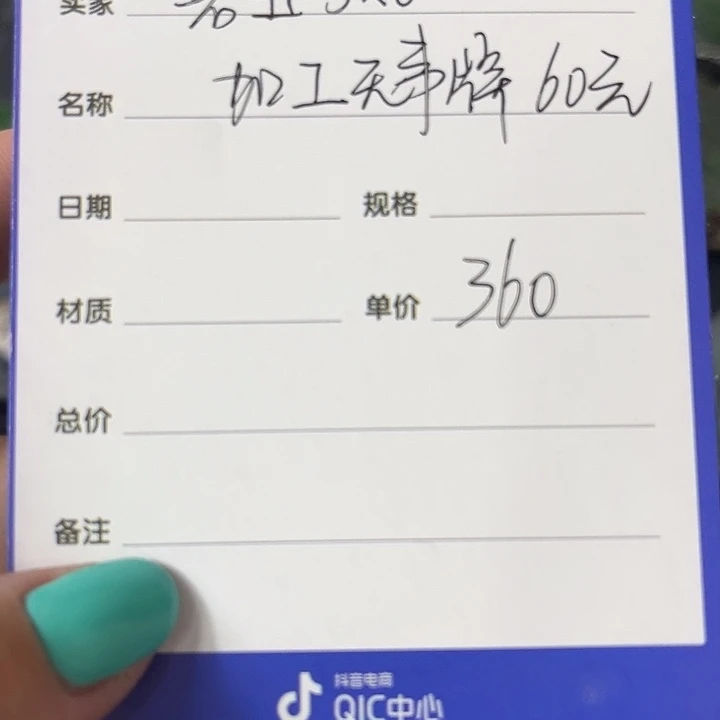 卖家
名称 加工无事牌 60元
日期 规格
材质 单价 360
总价
备注
抖音电商
QIC中心